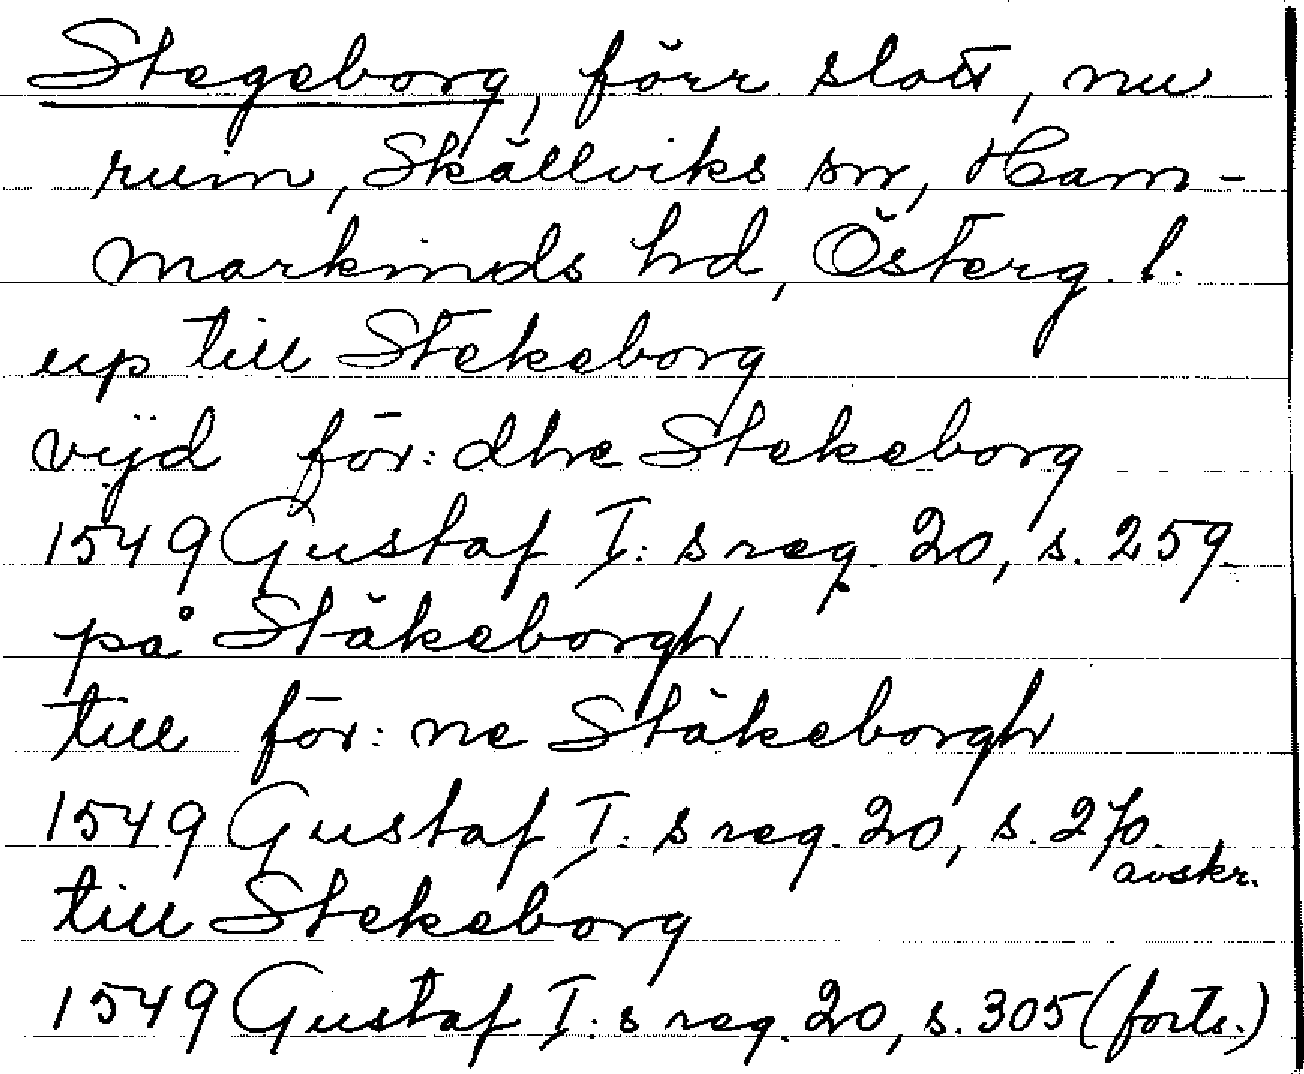 Stegeborg, förr slott, nu
ruin, Skällviks sn, Ham-
markinds hd, Österg. l.
up till Stekeborg
vijd för: dhe Stekeborg
1549 Gustaf I: s reg. 20, s. 259.
på Stäkeborgh
till för: ne Stäkeborgh
1549 Gustaf I: s reg. 20, s. 270.
avskr.
till Stekeborg
1549 Gustaf I: s reg. 20, s. 305 (forts.)